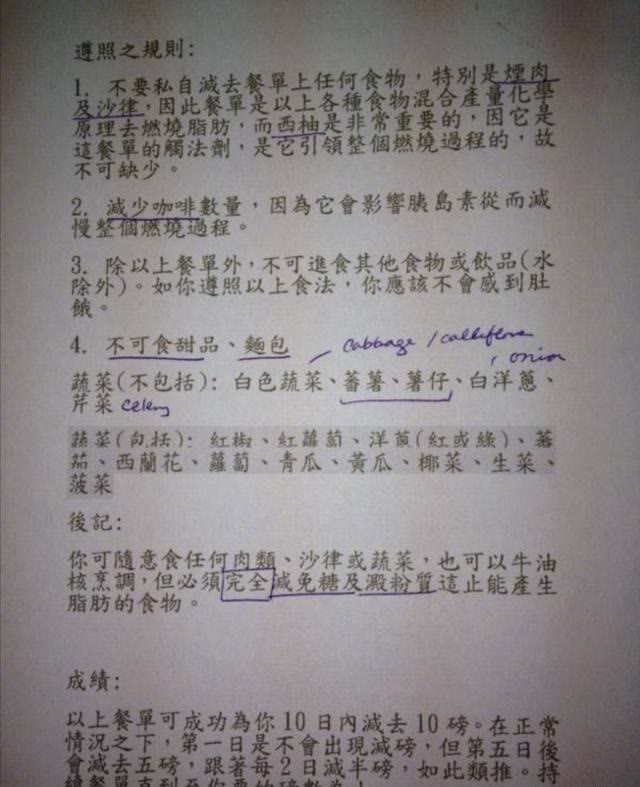 遵照之規則:
1. 不要私自減去餐單上任何食物，特別是煙肉
及沙律，因此餐單是以上各種食物混合產量化學
原理去燃燒脂肪，而西柚是非常重要的，因它是
這餐單的觸法劑，是它引領整個燃燒過程的，故
不可缺少。
2. 減少咖啡數量，因為它會影響胰島素從而減
慢整個燃燒過程。
3. 除以上餐單外，不可進食其他食物或飲品(水
除外)。如你遵照以上食法，你應該不會感到肚
餓。
4. 不可食甜品、麵包
cabbage / calliflore
, onion
蔬菜(不包括): 白色蔬菜、蕃薯、薯仔、白洋蔥、
芹菜 celery
蔬菜(包括): 紅椒、紅蘿蔔、洋蔥(紅或綠)、蕃
茄、西蘭花、蘿蔔、青瓜、黃瓜、椰菜、生菜、
菠菜
後記:
你可隨意食任何肉類、沙律或蔬菜，也可以牛油
核烹調，但必須完全減免糖及澱粉質這止能產生
脂肪的食物。
成績:
以上餐單可成功為你10日內減去10磅。在正常
情況之下，第一日是不會出現減磅，但第五日後
會減去五磅，跟著每2日減半磅，如此類推。持